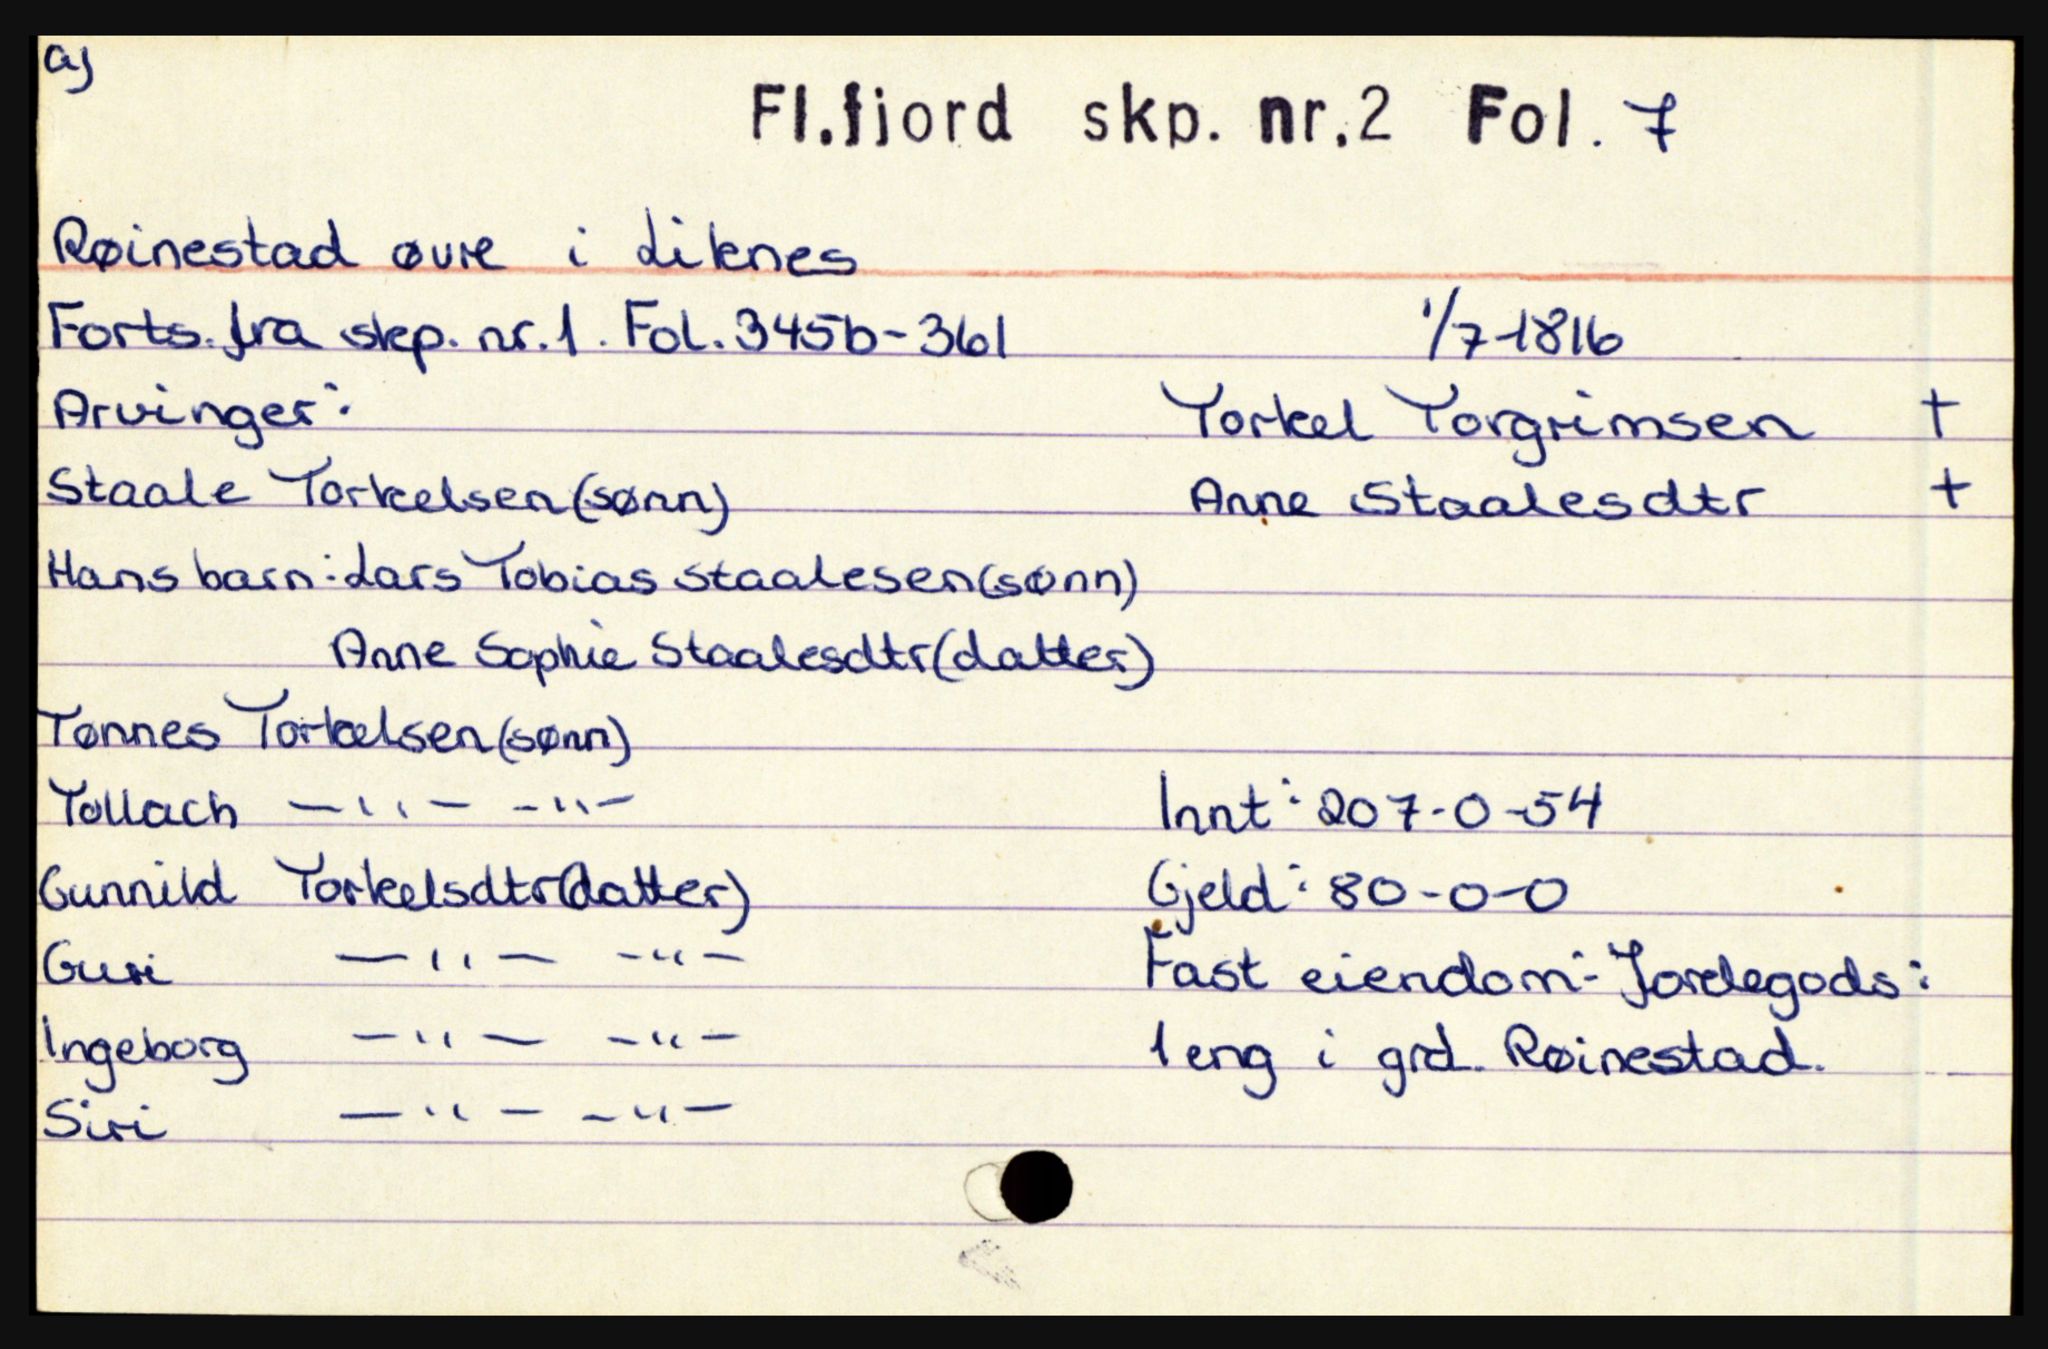 aj
Fl.fjord skp. nr.2 Fol. 7
Røinestad øvre i Liknes
Forts. fra skp. nr. 1. Fol. 345b-361 1/7-1816
Arvinger: Torkel Torgrimsen +
Staale Torkelsen (sønn) Anne Staalesdtr +
Hans barn: Lars Tobias Staalesen (sønn)
Anne Sophie Staalesdtr (datter)
Tønnes Torkelsen (sønn)
Tollach —"— —"— Innt: 207-0-54
Gunnild Torkelsdtr (datter) Gjeld: 80-0-0
Guri —"— —"— Fast eiendom:- Jordegods:
Ingeborg —"— —"— 1 eng i grd. Røinestad.
Siri —"— —"—